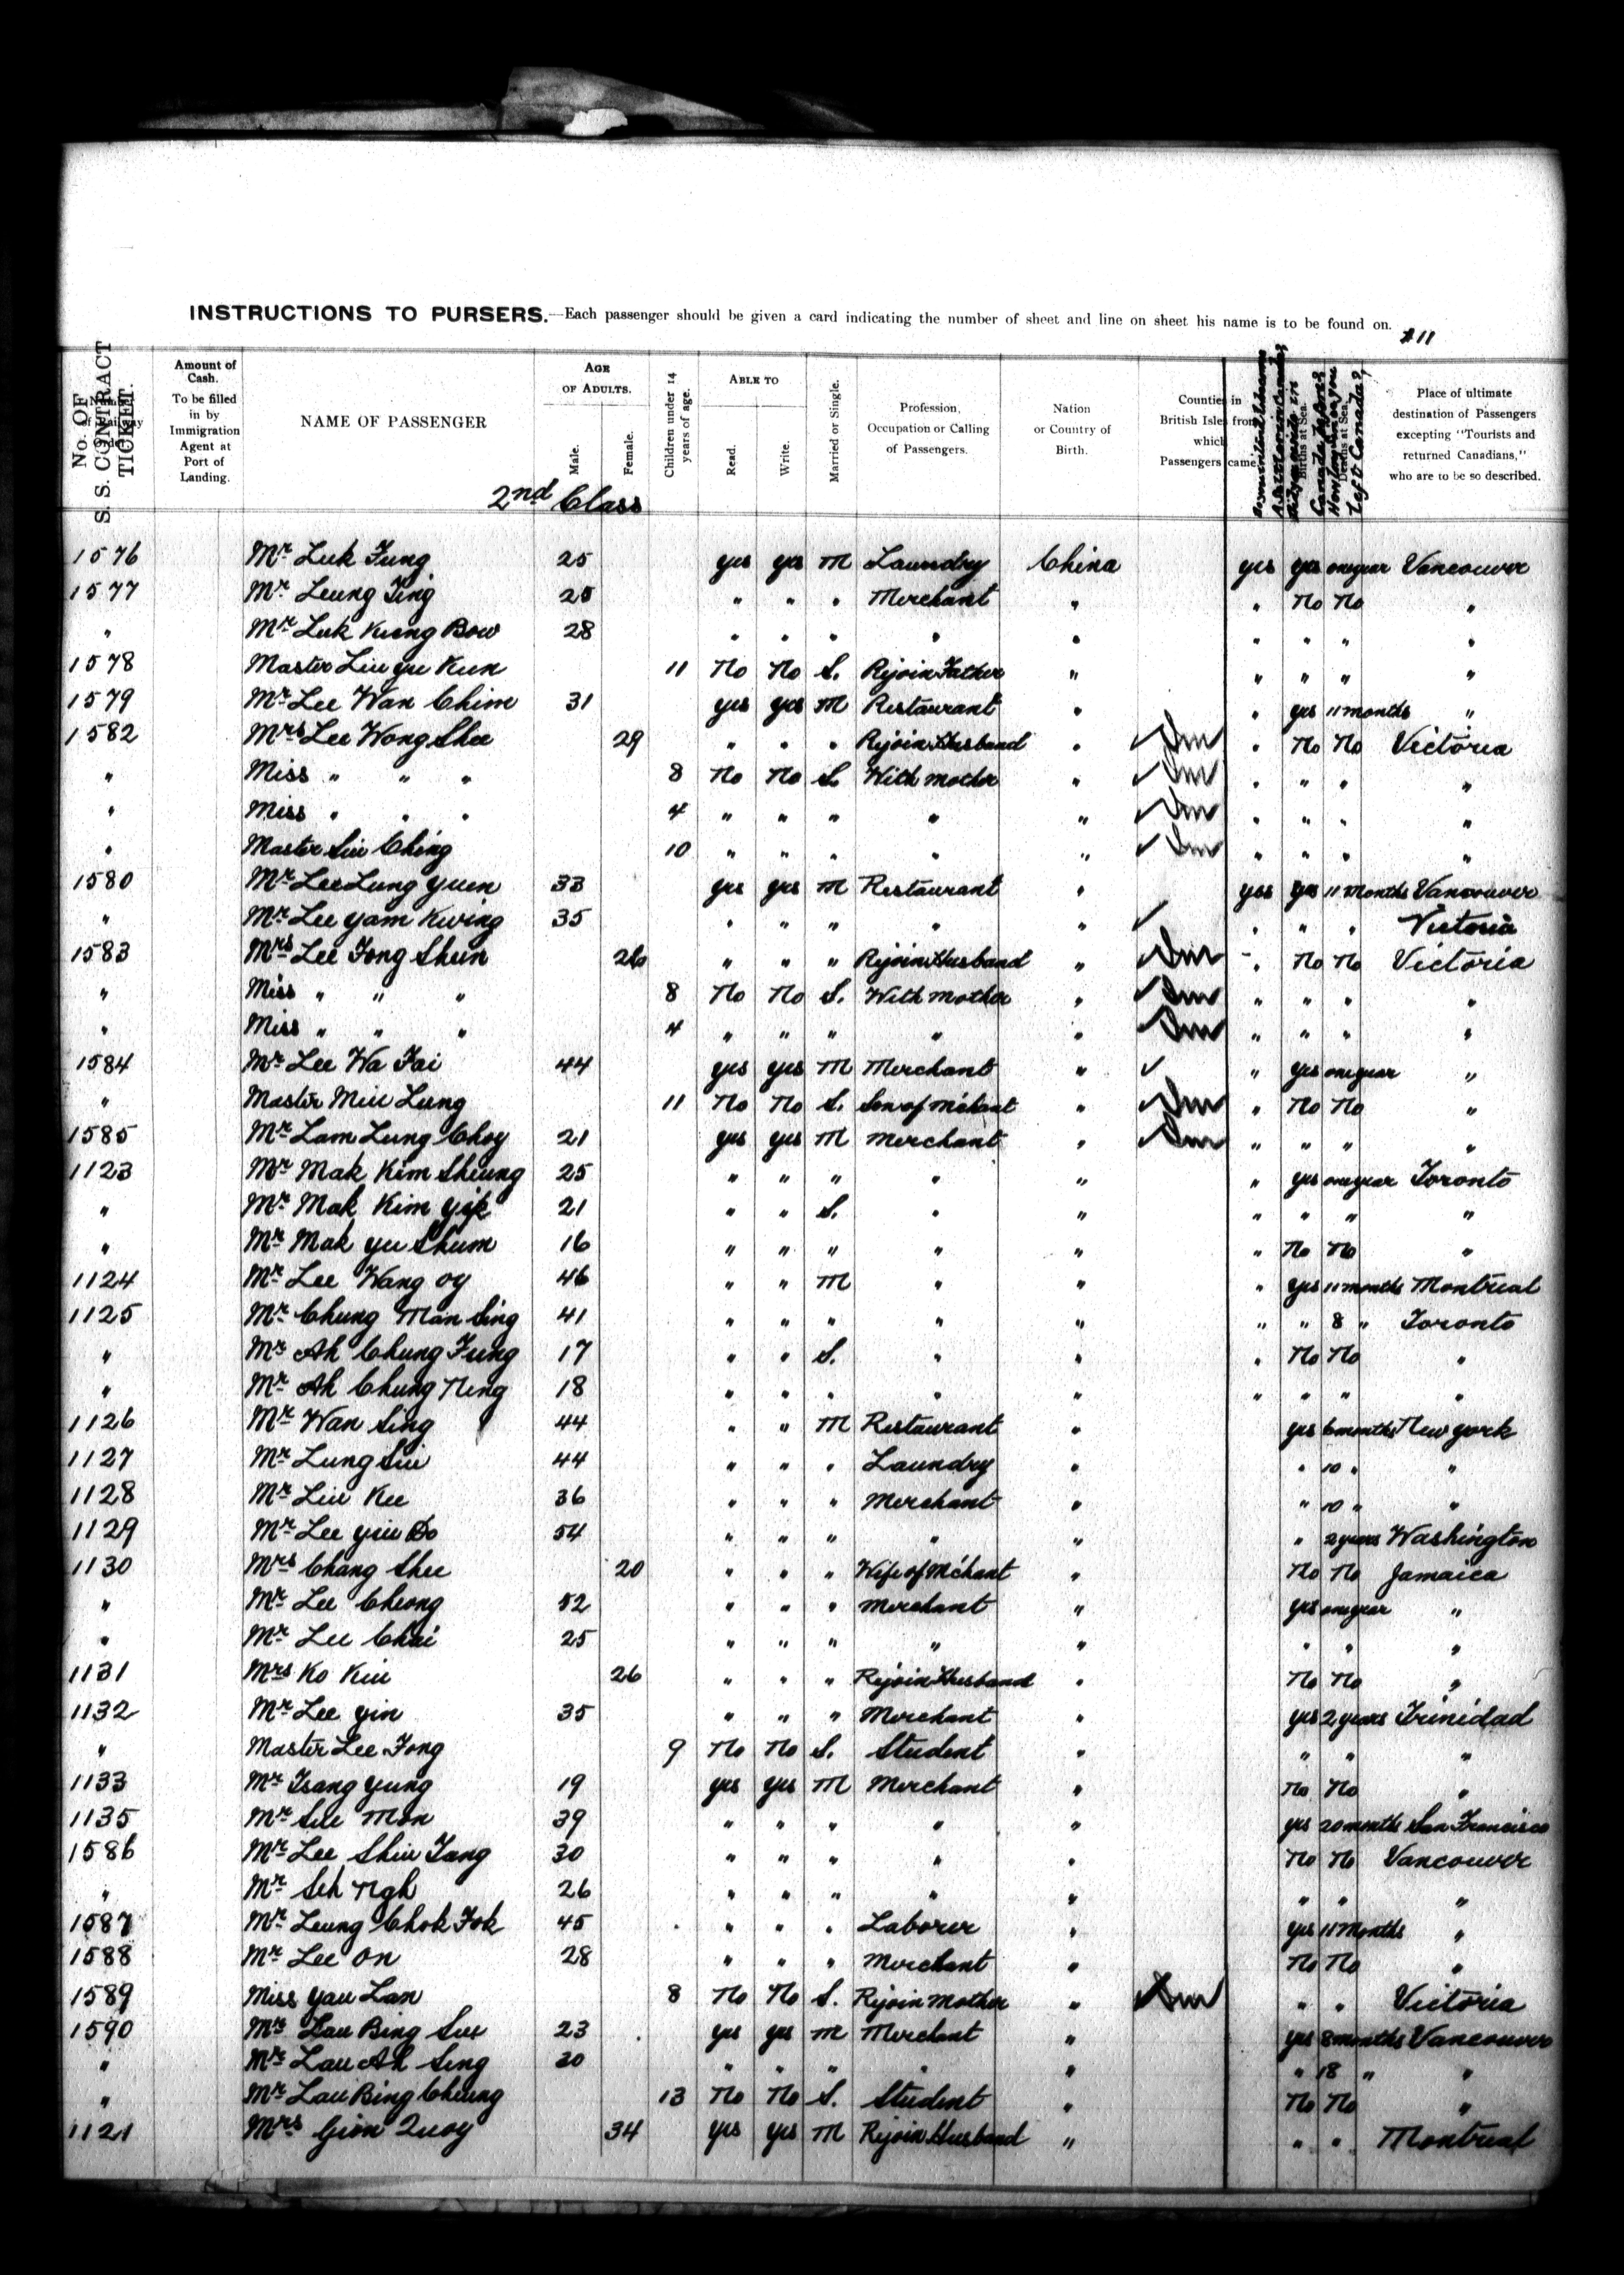 INSTRUCTIONS TO PURSERS.—Each passenger should be given a card indicating the number of sheet and line on sheet his name is to be found on.
#11
No. OF S. S. CONTRACT TICKET.
Amount of Cash. To be filled in by Immigration Agent at Port of Landing.
NAME OF PASSENGER
AGE OF ADULTS.
Male.
Female.
Children under 14 years of age.
ABLE TO
Read.
Write.
Married or Single.
Profession, Occupation or Calling of Passengers.
Nation or Country of Birth.
Counties in British Isles from which Passengers came.
Births at Sea.
Deaths at Sea.
Place of ultimate destination of Passengers excepting "Tourists and returned Canadians," who are to be so described.
2nd Class
1576 Mr Luk Fung 25 yes yes M Laundry China yes yes one year Vancouver
1577 Mr Leung Ting 25 " " " Merchant " " No No "
" Mr Luk Kung Bow 28 " " " " " " " " "
1578 Master Liu yu Kun 11 No No S. Rejoin Father " " " " "
1579 Mr Lee Wan Chim 31 yes yes M Restaurant " " yes 11 months "
1582 Mrs Lee Wong Shee 29 " " " Rejoin Husband " " No No Victoria
" Miss " " " 8 No No S. With mother " " " " "
" Miss " " " 4 " " " " " " " " "
" Master Siu Ching 10 " " " " " " " " "
1580 Mr Lee Lung yuen 33 yes yes M Restaurant " yes yes 11 months Vancouver
" Mr Lee yam Kwing 35 " " " " " " " " Victoria
1583 Mrs Lee Fong Shun 26 " " " Rejoin Husband " " No No Victoria
" Miss " " " 8 No No S. With mother " " " " "
" Miss " " " 4 " " " " " " " " "
1584 Mr Lee Wa Fai 44 yes yes M Merchant " " yes one year "
" Master Miu Lung 11 No No S. Son of M'chant " " No No "
1585 Mr Lam Lung Choy 21 yes yes M Merchant " " " " "
1123 Mr Mak Kim Sheung 25 " " " " " " yes one year Toronto
" Mr Mak Kim yik 21 " " S. " " " " " "
" Mr Mak yu Shum 16 " " " " " " No No "
1124 Mr Lee Wang oy 46 " " M " " " yes 11 months Montreal
1125 Mr Chung Man Sing 41 " " " " " " " 8 " Toronto
" Mr Ah Chung Fung 17 " " S. " " " No No "
" Mr Ah Chung Neng 18 " " " " " " " " "
1126 Mr Wan Sing 44 " " M Restaurant " yes 6 months New york
1127 Mr Lung Siu 44 " " " Laundry " " 10 " "
1128 Mr Liu Kee 36 " " " Merchant " " 10 " "
1129 Mr Lee yiu Do 54 " " " " " " 2 years Washington
1130 Mrs Chang Shee 20 " " " Wife of M'chant " No No Jamaica
" Mr Lee Cheong 52 " " " Merchant " yes one year "
" Mr Lee Chai 25 " " " " " " " "
1131 Mrs Ko Kiu 26 " " " Rejoin Husband " No No "
1132 Mr Lee yin 35 " " " Merchant " yes 2 years Trinidad
" Master Lee Fong 9 No No S. Student " " " "
1133 Mr Tsang yung 19 yes yes M Merchant " No No "
1135 Mr See Mon 39 " " " " " yes 20 months San Francisco
1586 Mr Lee Shiu Tang 30 " " " " " No No Vancouver
" Mr Seh Ngh 26 " " " " " " " "
1587 Mr Leung Chok Fok 45 " " " Laborer " yes 11 months "
1588 Mr Lee On 28 " " " Merchant " No No "
1589 Miss yau Lan 8 No No S. Rejoin mother " " " Victoria
1590 Mr Lau Bing Sui 23 yes yes M Merchant " yes 8 months Vancouver
" Mr Lau Ah Seng 20 " " " " " " 18 " "
" Mr Lau Bing Cheung 13 No No S. Student " No No "
1121 Mrs Gion Quoy 34 yes yes M Rejoin Husband " " " Montreal